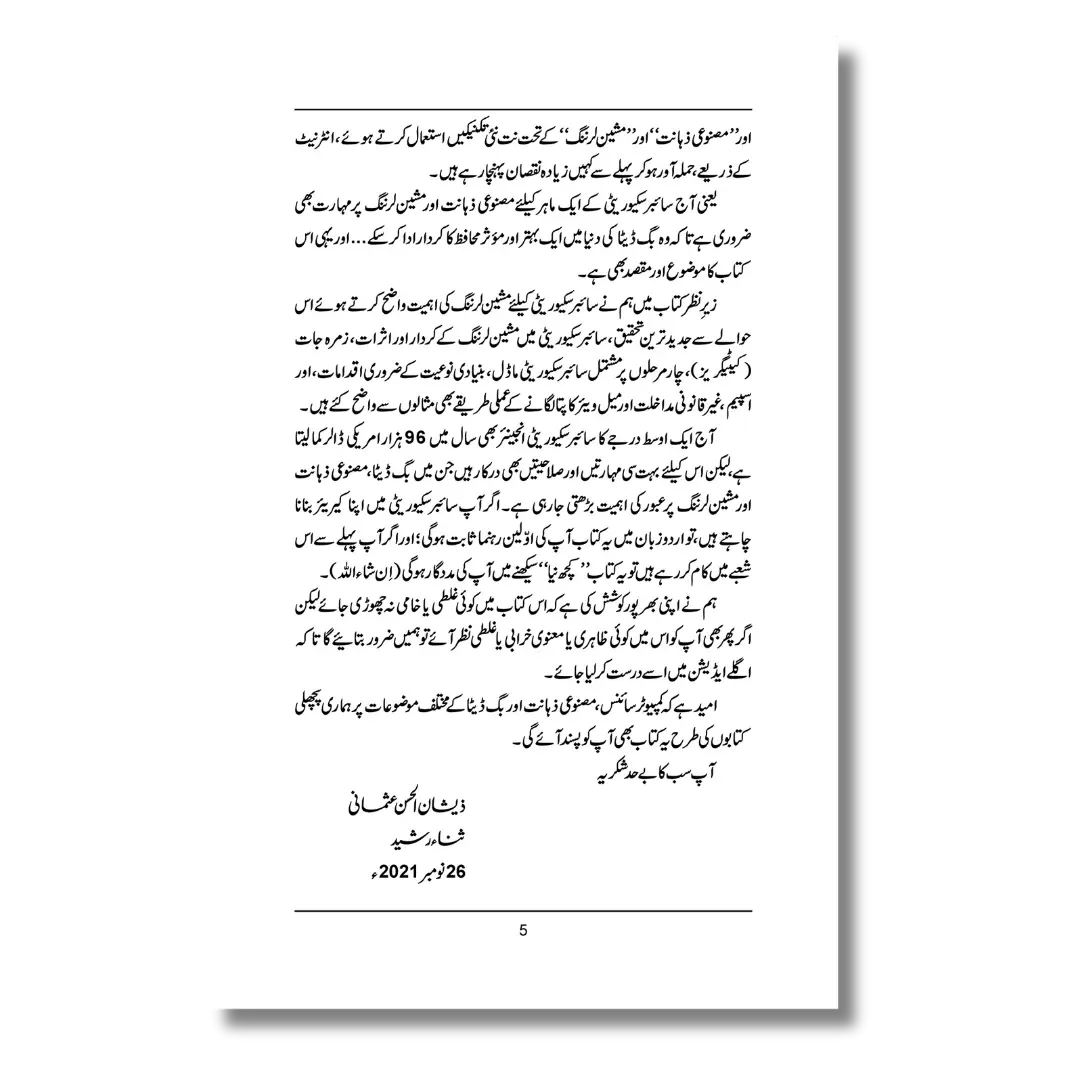 اور ’’مصنوعی ذہانت‘‘ اور ’’مشین لرننگ‘‘ کے تحت نت نئی تکنیکیں استعمال کرتے ہوئے، انٹرنیٹ
کے ذریعے، حملہ آور ہو کر پہلے سے کہیں زیادہ نقصان پہنچا رہے ہیں۔
یعنی آج سائبر سکیوریٹی کے ایک ماہر کیلئے مصنوعی ذہانت اور مشین لرننگ پر مہارت بھی
ضروری ہے تاکہ وہ بگ ڈیٹا کی دنیا میں ایک بہتر اور مؤثر محافظ کا کردار ادا کر سکے... اور یہی اس
کتاب کا موضوع اور مقصد بھی ہے۔
زیرِ نظر کتاب میں ہم نے سائبر سکیوریٹی کیلئے مشین لرننگ کی اہمیت واضح کرتے ہوئے اس
حوالے سے جدید ترین تحقیق، سائبر سکیوریٹی میں مشین لرننگ کے کردار اور اثرات، زمرہ جات
(کیٹیگریز)، چار مرحلوں پر مشتمل سائبر سکیوریٹی ماڈل، بنیادی نوعیت کے ضروری اقدامات، اور
اسپیم، غیر قانونی مداخلت اور میل ویئر کا پتا لگانے کے عملی طریقے بھی مثالوں سے واضح کئے ہیں۔
آج ایک اوسط درجے کا سائبر سکیوریٹی انجینئر بھی سال میں 96 ہزار امریکی ڈالر کما لیتا
ہے، لیکن اس کیلئے بہت سی مہارتیں اور صلاحیتیں بھی درکار ہیں جن میں بگ ڈیٹا، مصنوعی ذہانت
اور مشین لرننگ پر عبور کی اہمیت بڑھتی جا رہی ہے۔ اگر آپ سائبر سکیوریٹی میں اپنا کیریئر بنانا
چاہتے ہیں، تو اردو زبان میں یہ کتاب آپ کی اوّلین رہنما ثابت ہوگی؛ اور اگر آپ پہلے سے اس
شعبے میں کام کر رہے ہیں تو یہ کتاب ’’کچھ نیا‘‘ سیکھنے میں آپ کی مددگار ہوگی (اِن شاء اللہ)۔
ہم نے اپنی بھرپور کوشش کی ہے کہ اس کتاب میں کوئی غلطی یا خامی نہ چھوڑی جائے لیکن
اگر پھر بھی آپ کو اس میں کوئی ظاہری یا معنوی خرابی یا غلطی نظر آئے تو ہمیں ضرور بتائیے گا تاکہ
اگلے ایڈیشن میں اسے درست کر لیا جائے۔
امید ہے کہ کمپیوٹر سائنس، مصنوعی ذہانت اور بگ ڈیٹا کے مختلف موضوعات پر ہماری پچھلی
کتابوں کی طرح یہ کتاب بھی آپ کو پسند آئے گی۔
آپ سب کا بے حد شکریہ
ذیشان الحسن عثمانی
ثناء رشید
26 نومبر 2021ء
5